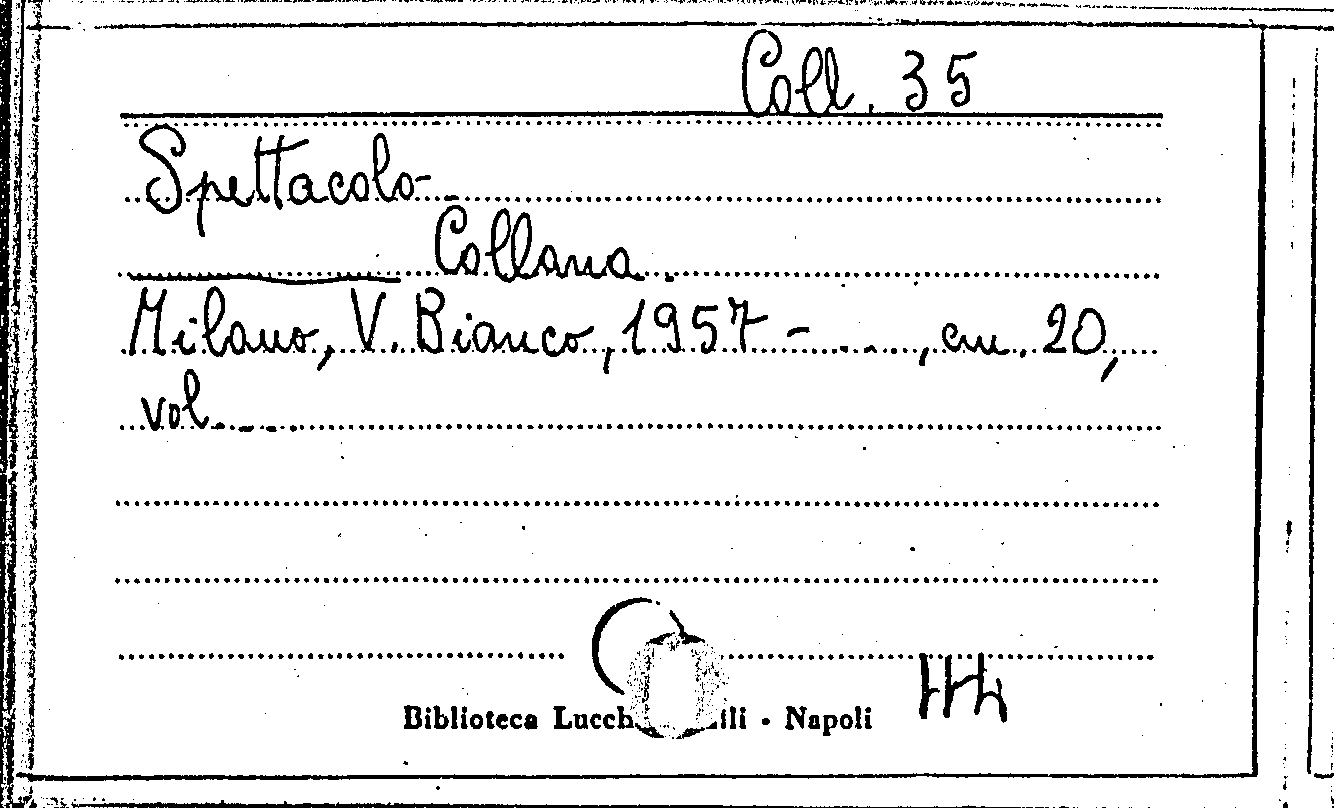 Coll. 35
Spettacolo-
Collana.
Milano, V. Bianco, 1957 - ...., cm. 20,
vol. ...
Biblioteca - Napoli